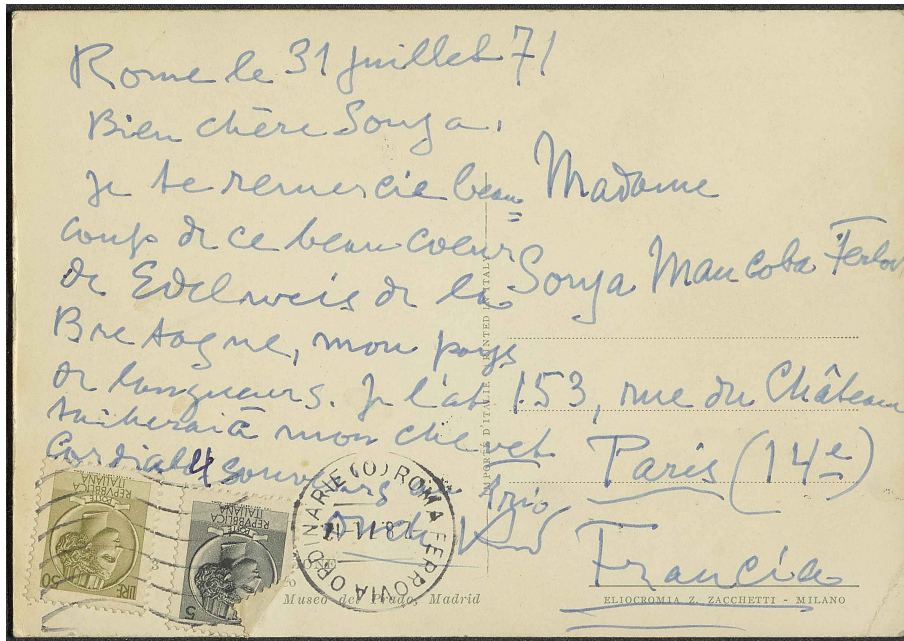 Rome le 31 juillet 71
Bien chère Sonya,
Je te remercie beau
coup de ce beau coeur
de Edelweis de la
Bretagne, mon pays
de longueurs. Je l'at
tacherai à mon chevet
Cordiaux souvenirs
Madame
Sonya Mancoba Ferlov
153, rue du Château
Paris (14e)
Francia
PRINTED IN ITALY
IMPORTÉ D'ITALIE
POSTE
REPVBBLICA
ITALIANA
LIRE 50
POSTE
REPVBBLICA
ITALIANA
5
ROMA FERROVIA ORDINARIE (O)
Museo del Prado, Madrid
ELIOCROMIA Z. ZACCHETTI - MILANO